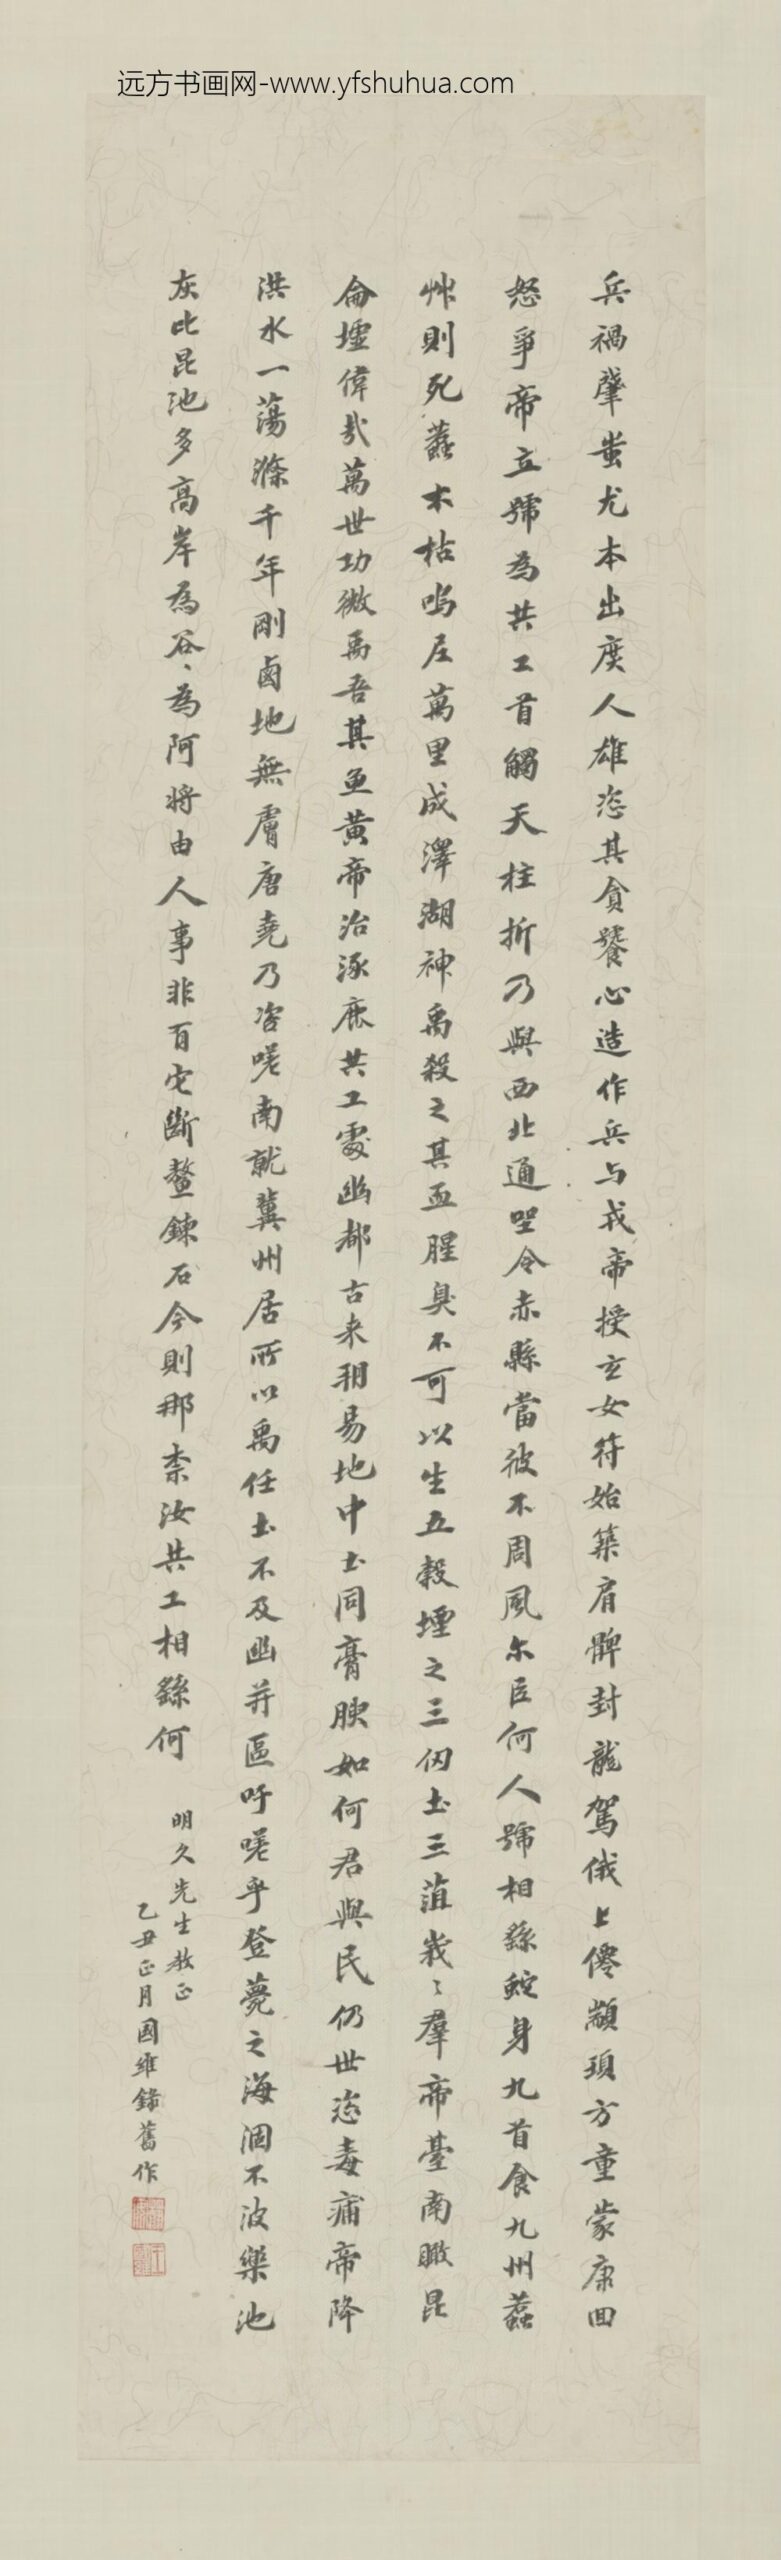 远方书画网-www.yfshuhua.com
兵禍肇蚩尤本出庶人雄恣其貪饕心造作兵与戎帝授玄女符始築肩髀封龍駕俄上僊顓頊方童蒙康回
怒爭帝立號為共工首觸天柱折乃與西北通坐令赤縣當彼不周風尒臣何人號相繇蛇身九首食九州蠚
艸則死蠚木枯嗚尼萬里成澤湖神禹殺之其血腥臭不可以生五穀堙之三仞土三菹峩〻羣帝臺南瞰昆
侖墟偉哉萬世功微禹吾其魚黃帝治涿鹿共工處幽都古来朔易地中土同膏腴如何君與民仍世恣毒痡帝降
洪水一蕩滌千年剛鹵地無膚唐堯乃咨嗟南就冀州居所以禹任土不及幽并區吁嗟乎登薨之海涸不波樂池
灰比昆池多高岸為谷〻為阿將由人事非有它斷鼇鍊石今則那柰汝共工相繇何
明久先生教正
乙丑正月國維錄舊作